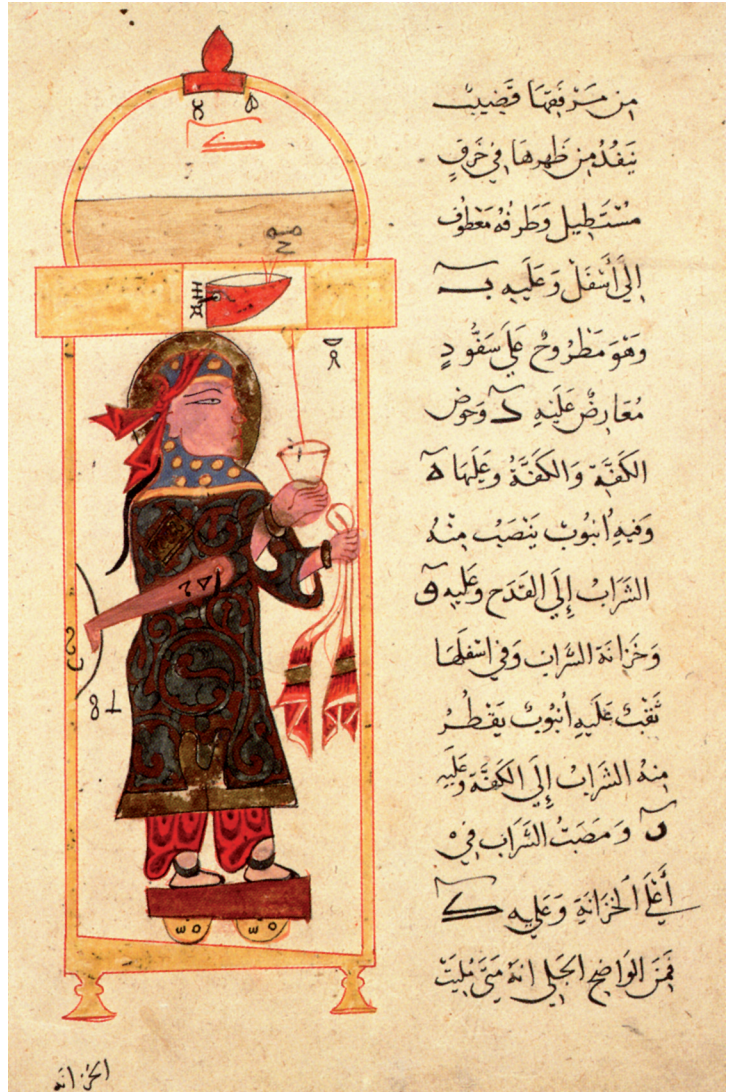 من مرفقها قضيب
ينفذ من ظهرها في خرق
مستطيل وطرفه معطوف
إلي أسفل وعليه ب
وهو مطروح علي سفود
معارض عليه د وحوض
الكفة والكفة وعليها ه
وفيه أنبوب ينصب منه
الشراب إلي القدح وعليه و
وخزانة الشراب وفي اسفلها
ثقب عليه أنبوب يقطر
منه الشراب إلي الكفة وعليه
ن ومصب الشراب في
أعلا الخزانة وعليه ك
فمن الواضح الجلي انه متي مليت
الخزانة